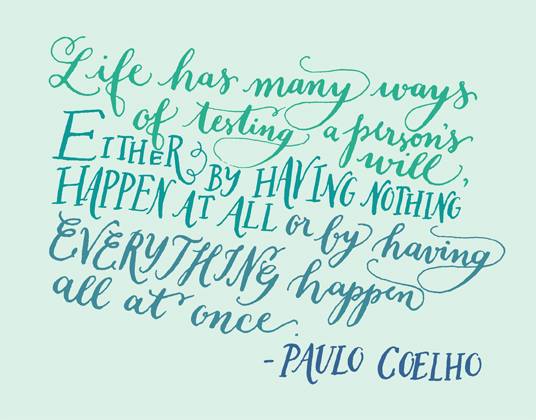 Life has many ways
of testing a person's
will,
EITHER BY HAVING NOTHING
HAPPEN AT ALL or by having
EVERYTHING happen
all at once.
- PAULO COELHO